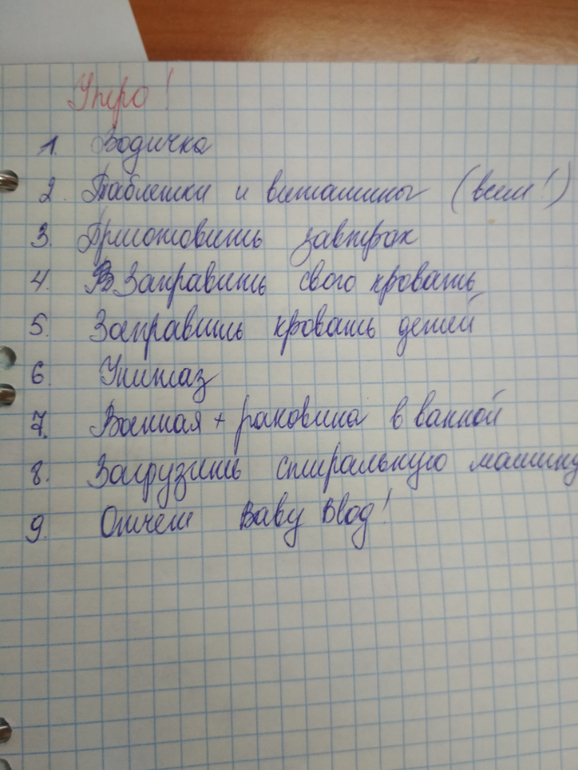 Утро!
1. Водичка
2. Таблетки и витамины (всем!)
3. Приготовить завтрак
4. Заправить свого кровать
5. Заправить кровать детей
6. Унитаз
7. Ванная + раковина в ванной
8. Загрузить стиральную машину
9. Отчет Baby Blog!